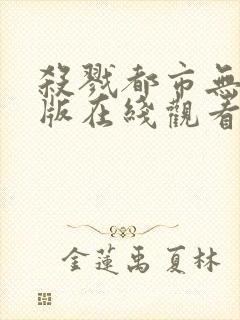 殺戮都市無
版在綫觀看
金蓮禹夏林